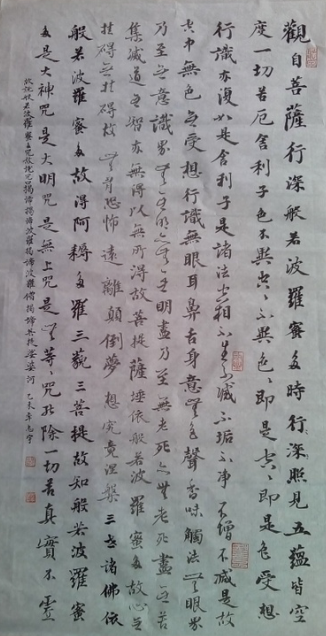 觀自菩薩行深般若波羅蜜多時行深照見五蘊皆空
度一切苦厄舍利子色不異空空不異色色即是空空即是色受想
行識亦復如是舍利子是諸法空相不生不滅不垢不淨不增不減是故
空中無色無受想行識無眼耳鼻舌身意無色聲香味觸法無眼界
乃至無意識界無無明亦無無明盡乃至無老死亦無老死盡無苦
集滅道無智亦無得以無所得故菩提薩埵依般若波羅蜜多故心無
挂礙無挂礙故無有恐怖遠離顛倒夢想究竟涅槃三世諸佛依
般若波羅蜜多故得阿耨多羅三藐三菩提故知般若波羅蜜
多是大神咒是大明咒是無上咒是無等等咒能除一切苦真實不虛
故說般若波羅蜜多咒即說咒曰揭諦揭諦波羅揭諦波羅僧揭諦菩提娑婆訶 乙未